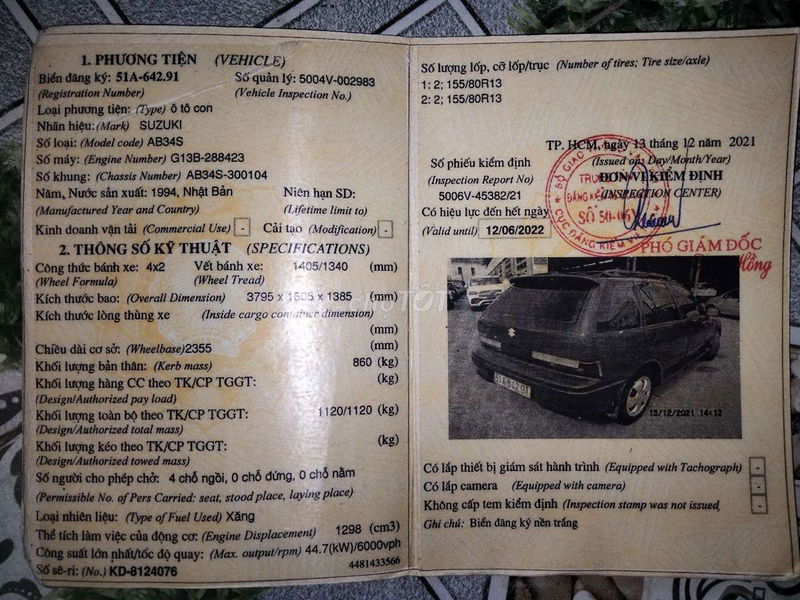 1. PHƯƠNG TIỆN (VEHICLE)
Biển đăng ký: 51A-642.91 Số quản lý: 5004V-002983
(Registration Number) (Vehicle Inspection No.)
Loại phương tiện: (Type) ô tô con
Nhãn hiệu: (Mark) SUZUKI
Số loại: (Model code) AB34S
Số máy: (Engine Number) G13B-288423
Số khung: (Chassis Number) AB34S-300104
Năm, Nước sản xuất: 1994, Nhật Bản Niên hạn SD:
(Manufactured Year and Country) (Lifetime limit to)
Kinh doanh vận tải (Commercial Use) - Cải tạo (Modification) -
2. THÔNG SỐ KỸ THUẬT (SPECIFICATIONS)
Công thức bánh xe: 4x2 Vết bánh xe: 1405/1340 (mm)
(Wheel Formula) (Wheel Tread)
Kích thước bao: (Overall Dimension) 3795 x 1605 x 1385 (mm)
Kích thước lòng thùng xe (Inside cargo container dimension)
(mm)
Chiều dài cơ sở: (Wheelbase)2355 (mm)
Khối lượng bản thân: (Kerb mass) 860 (kg)
Khối lượng hàng CC theo TK/CP TGGT: (kg)
(Design/Authorized pay load)
Khối lượng toàn bộ theo TK/CP TGGT: 1120/1120 (kg)
(Design/Authorized total mass)
Khối lượng kéo theo TK/CP TGGT: (kg)
(Design/Authorized towed mass)
Số người cho phép chở: 4 chỗ ngồi, 0 chỗ đứng, 0 chỗ nằm
(Permissible No. of Pers Carried: seat, stood place, laying place)
Loại nhiên liệu: (Type of Fuel Used) Xăng
Thể tích làm việc của động cơ: (Engine Displacement) 1298 (cm3)
Công suất lớn nhất/tốc độ quay: (Max. output/rpm) 44.7(kW)/6000vph
Số sê-ri: (No.) KD-8124076 4481433566
Số lượng lốp, cỡ lốp/trục (Number of tires; Tire size/axle)
1: 2; 155/80R13
2: 2; 155/80R13
TP. HCM, ngày 13 tháng 12 năm 2021
(Issued on: Day/Month/Year)
Số phiếu kiểm định ĐƠN VỊ KIỂM ĐỊNH
(Inspection Report No) (INSPECTION CENTER)
5006V-45382/21
SỐ 50-06V
Có hiệu lực đến hết ngày
(Valid until) 12/06/2022
PHÓ GIÁM ĐỐC
51A-642.91
13/12/2021 14:12
Có lắp thiết bị giám sát hành trình (Equipped with Tachograph) -
Có lắp camera (Equipped with camera) -
Không cấp tem kiểm định (Inspection stamp was not issued) -
Ghi chú: Biển đăng ký nền trắng